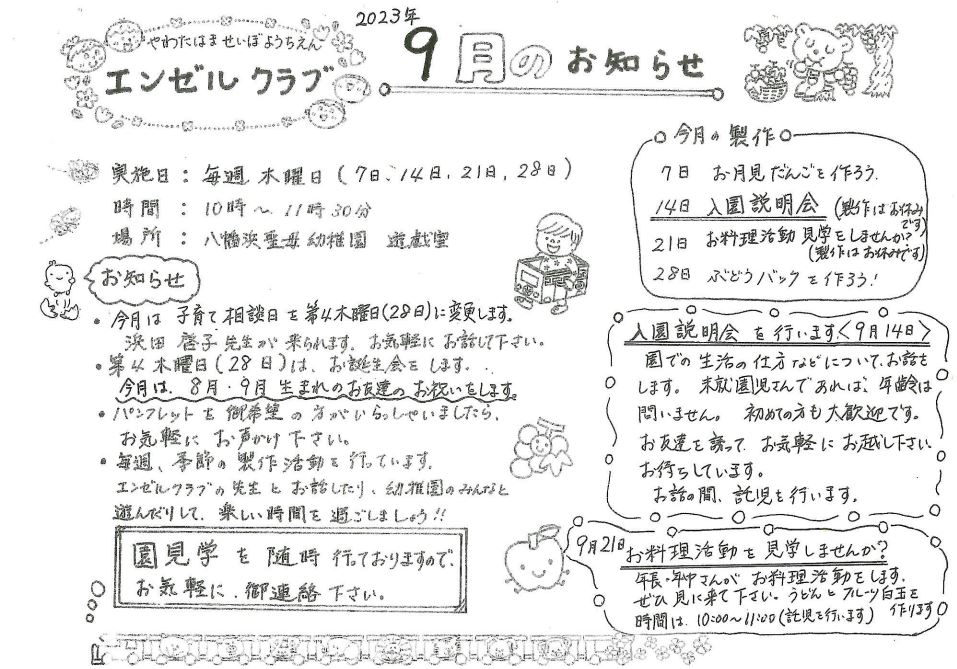 2023年
やわたはませいぼようちえん
エンゼルクラブ
9月のお知らせ
実施日：毎週 木曜日（7日、14日、21日、28日）
時間：10時～11時30分
場所：八幡浜聖母幼稚園 遊戯室
お知らせ
・今月は 子育て相談日を第4木曜日(28日)に変更します。
浜田 啓子先生が来られます。お気軽にお話して下さい。
・第4木曜日(28日)は、お誕生会をします。
今月は、8月・9月 生まれのお友達のお祝いをします。
・パンフレットを御希望の方がいらっしゃいましたら、
お気軽にお声かけ下さい。
・毎週、季節の製作活動を行っています。
エンゼルクラブの先生とお話したり、幼稚園のみんなと
遊んだりして、楽しい時間を過ごしましょう!!
園見学を随時行っておりますので、
お気軽に、御連絡下さい。
今月の製作
7日 お月見だんごを作ろう。
14日 入園説明会 (製作はお休みです)
21日 お料理活動見学をしませんか?
(製作はお休みです)
28日 ぶどうバックを作ろう!
入園説明会を行います〈9月14日〉
園での生活の仕方などについて、お話を
します。未就園児さんであれば、年齢は
問いません。初めての方も大歓迎です。
お友達を誘って お気軽にお越し下さい
お待ちしています。
お話の間、託児を行います。
9月21日
お料理活動を見学しませんか?
年長・年中さんがお料理活動をします。
ぜひ見に来て下さい。うどんとフルーツ白玉を
作ります
時間は、10:00～11:00(託児を行います)